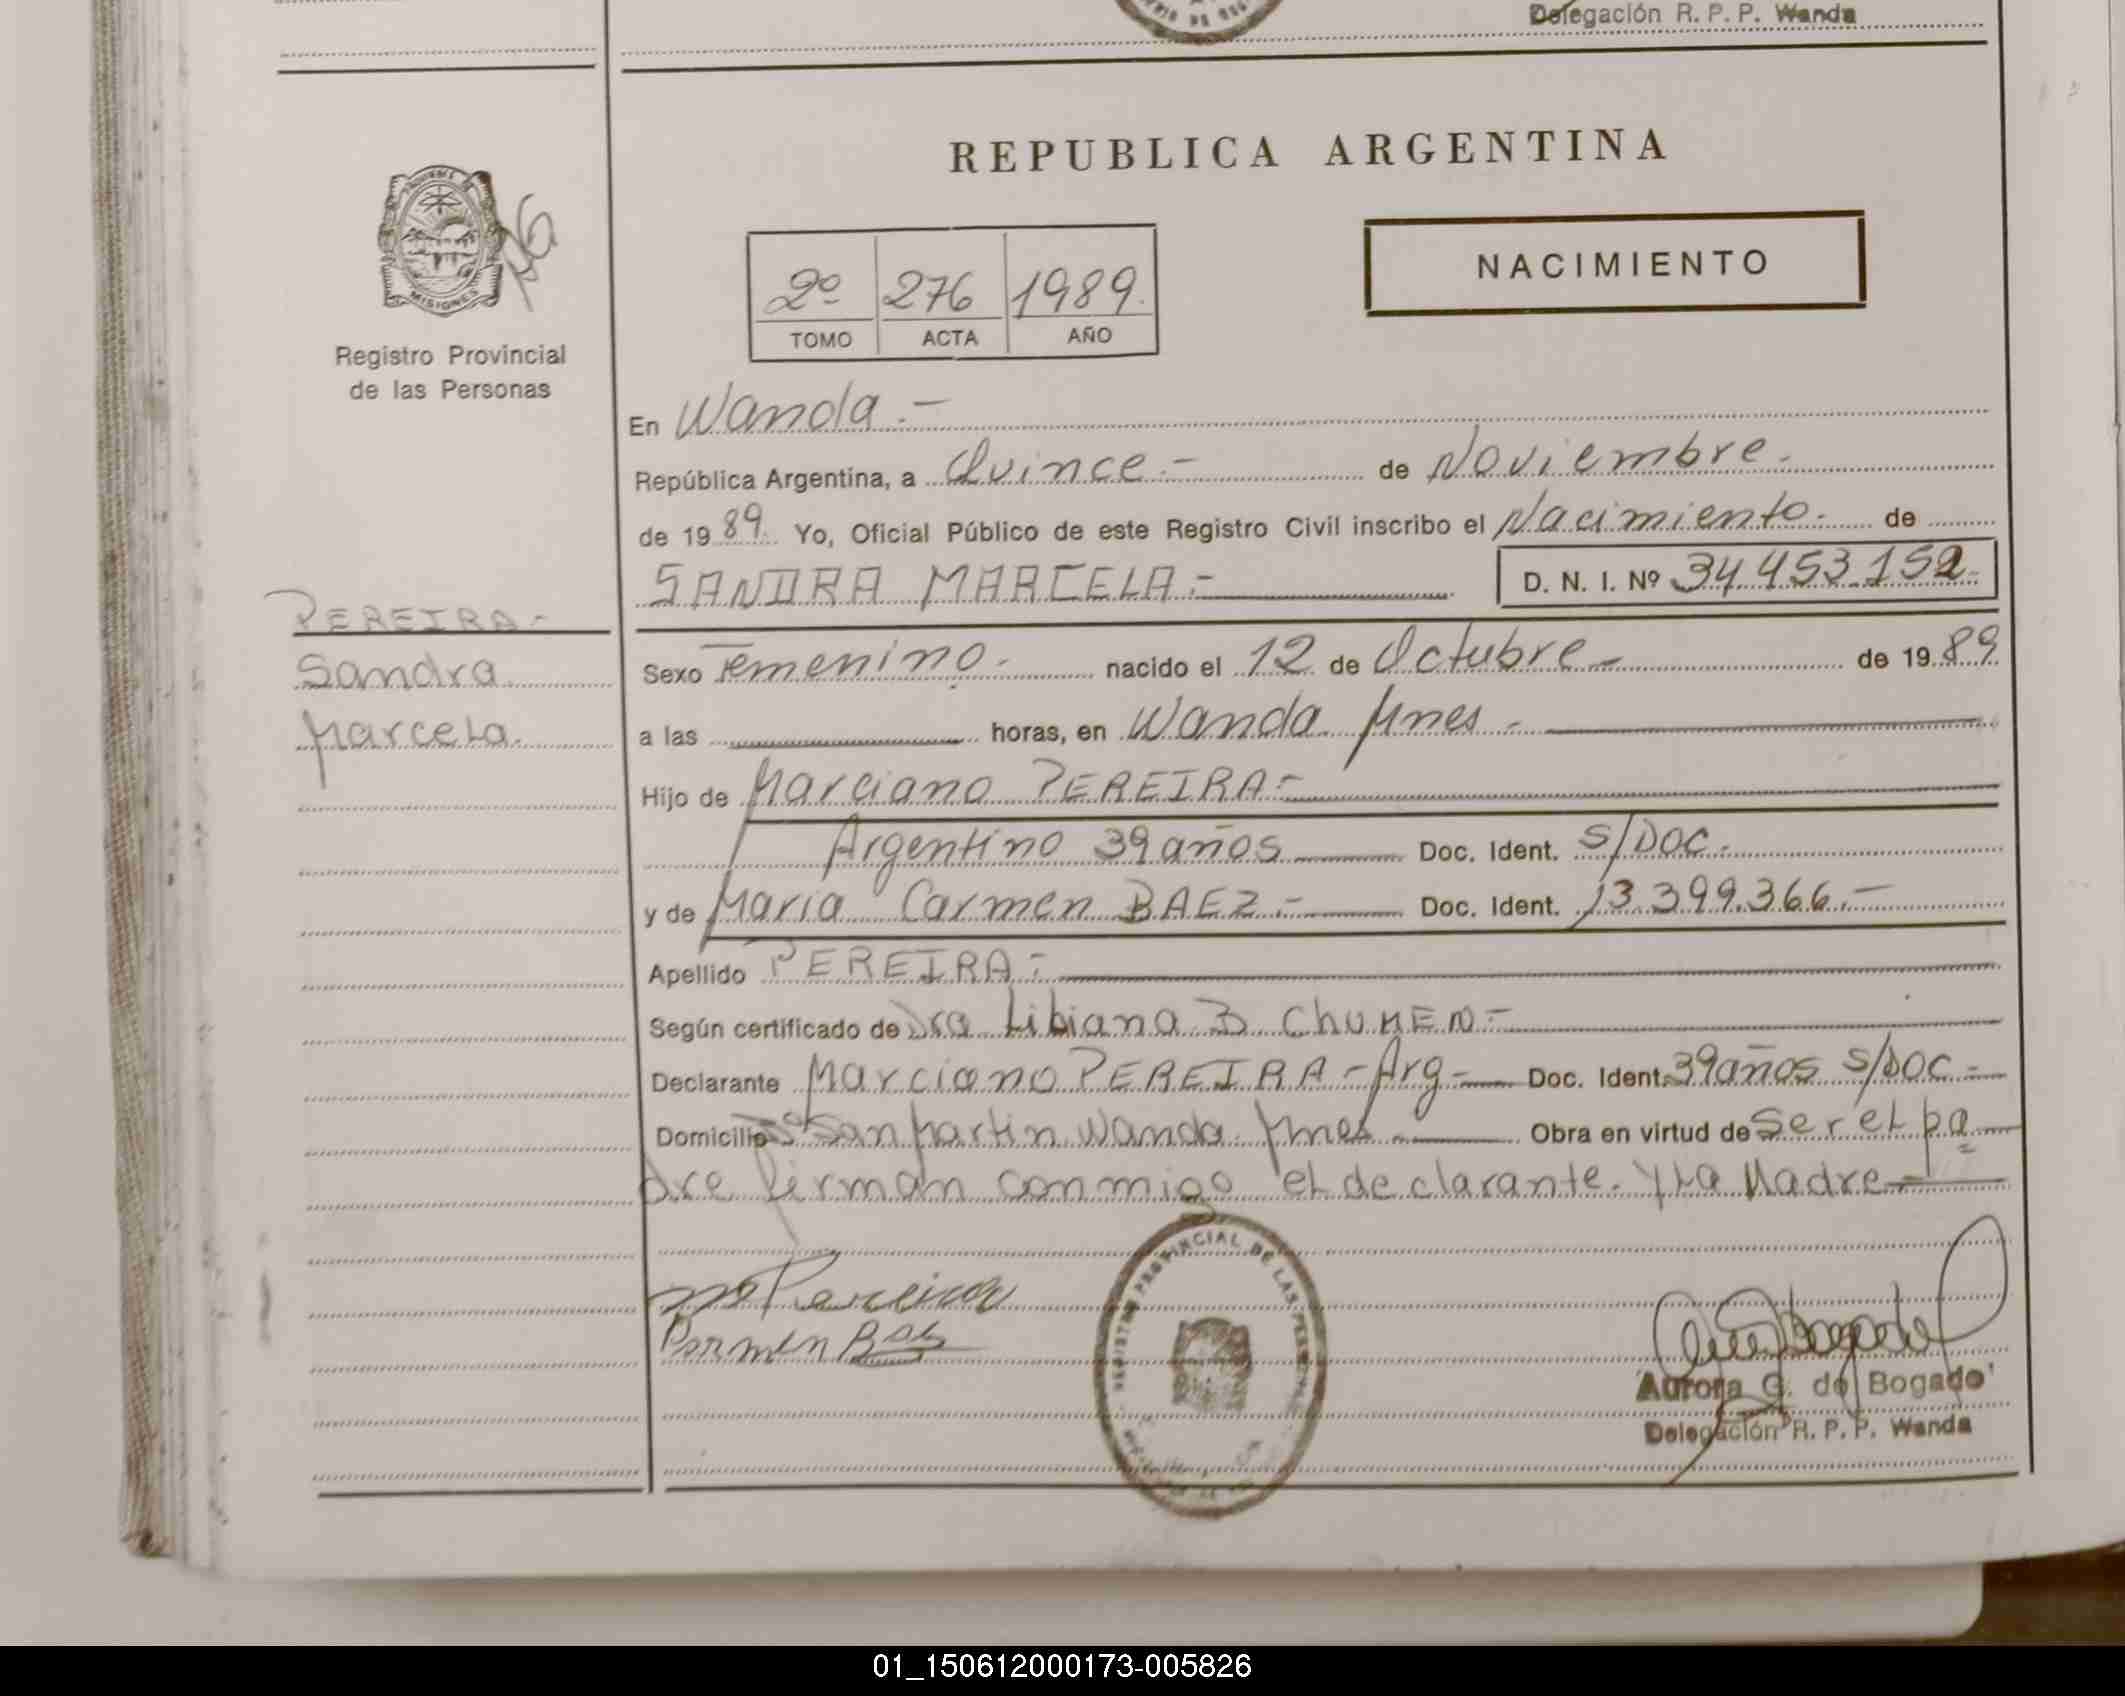 Delegación R. P. P. Wanda
REPUBLICA ARGENTINA
MISIONES
NACIMIENTO
2º 276 1989.
TOMO ACTA AÑO
Registro Provincial
de las Personas
En Wanda.-
República Argentina, a Quince.- de Noviembre.
de 1989. Yo, Oficial Público de este Registro Civil inscribo el Nacimiento. de
SANDRA MARCELA.- D. N. I. Nº 34.453.152
PEREIRA-
Sandra
Marcela.
Sexo Femenino. nacido el 12 de Octubre- de 1989
a las horas, en Wanda Mnes.-
Hijo de Marciano PEREIRA-
Argentino 39 años Doc. Ident. S/DOC.
y de Maria Carmen BAEZ.- Doc. Ident. 13.399.366.-
Apellido PEREIRA-
Según certificado de Dra Libiana B CHUMEN-
Declarante Marciano PEREIRA-Arg- Doc. Ident. 39 años S/DOC-
Domicilio San Martin Wanda Mnes.- Obra en virtud de ser el pa
dre firman conmigo el declarante. y la Madre-
Pereira
Carmen Baez
REGISTRO PROVINCIAL DE LAS PERSONAS
Aurora G. de Bogado
Delegación R. P. P. Wanda
01_150612000173-005826